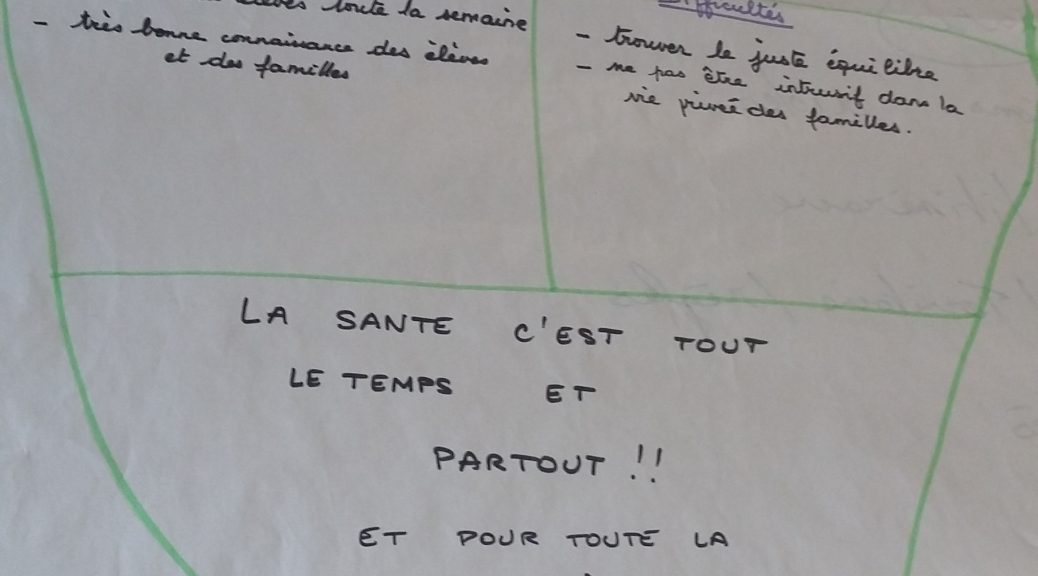 élèves toute la semaine
- très bonne connaissance des élèves
et des familles
Difficultés
- trouver le juste équilibre
- ne pas être intrusif dans la
vie privée des familles.
LA SANTE C'EST TOUT
LE TEMPS ET
PARTOUT !!
ET POUR TOUTE LA